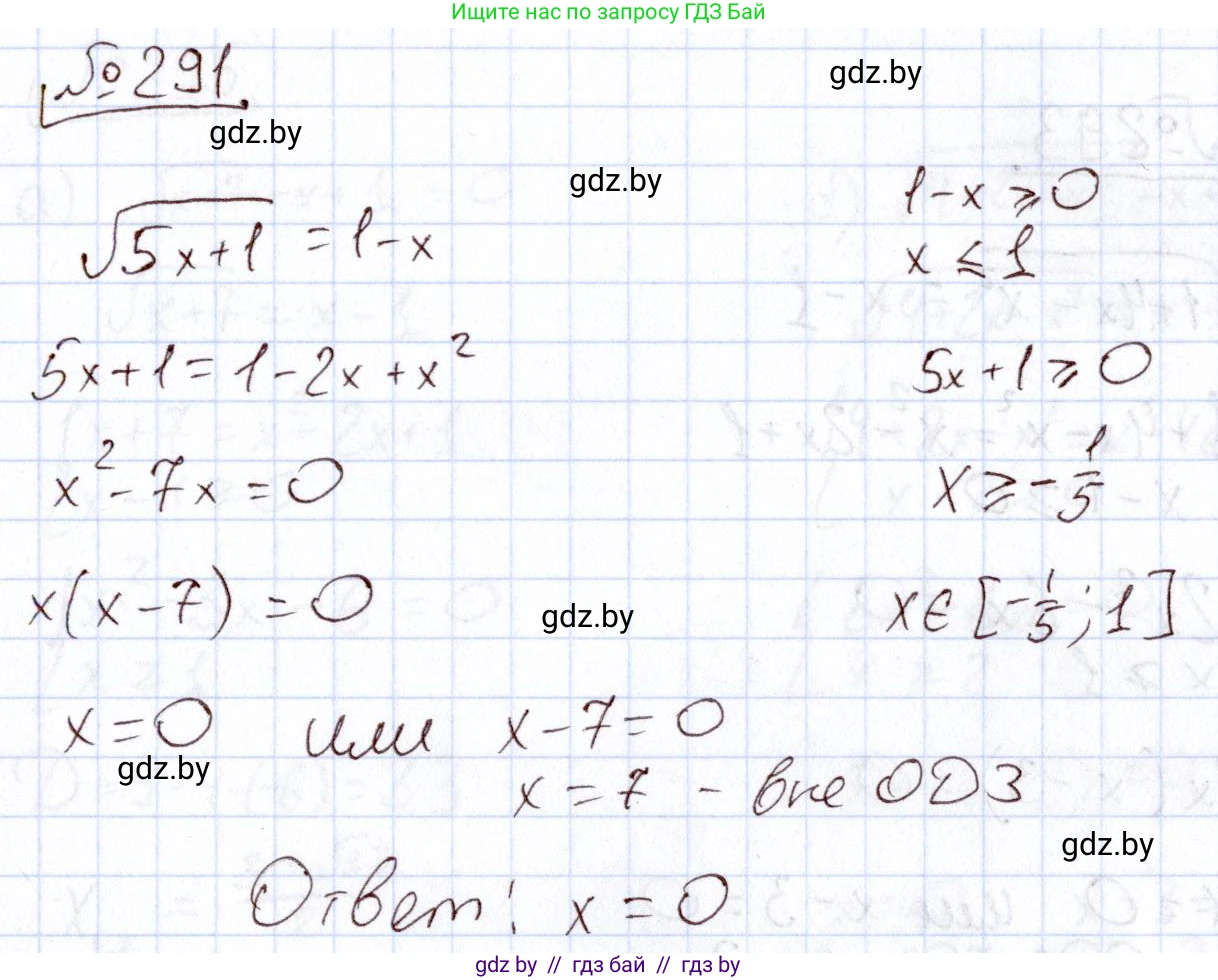 Ищите нас по запросу ГДЗ Бай
№ 291.
gdz.by
gdz.by
gdz.by
√5x+1 = 1-x
1-x ⩾ 0
x ⩽ 1
5x+1 = 1-2x+x²
5x+1 ⩾ 0
x²-7x=0
x ⩾ -1/5
x(x-7) = 0
gdz.by
x ∈ [-1/5; 1]
x=0 или x-7=0
gdz.by
x=7 - вне ОДЗ
gdz.by
Ответ: x=0
gdz by // гдз бай // гдз by